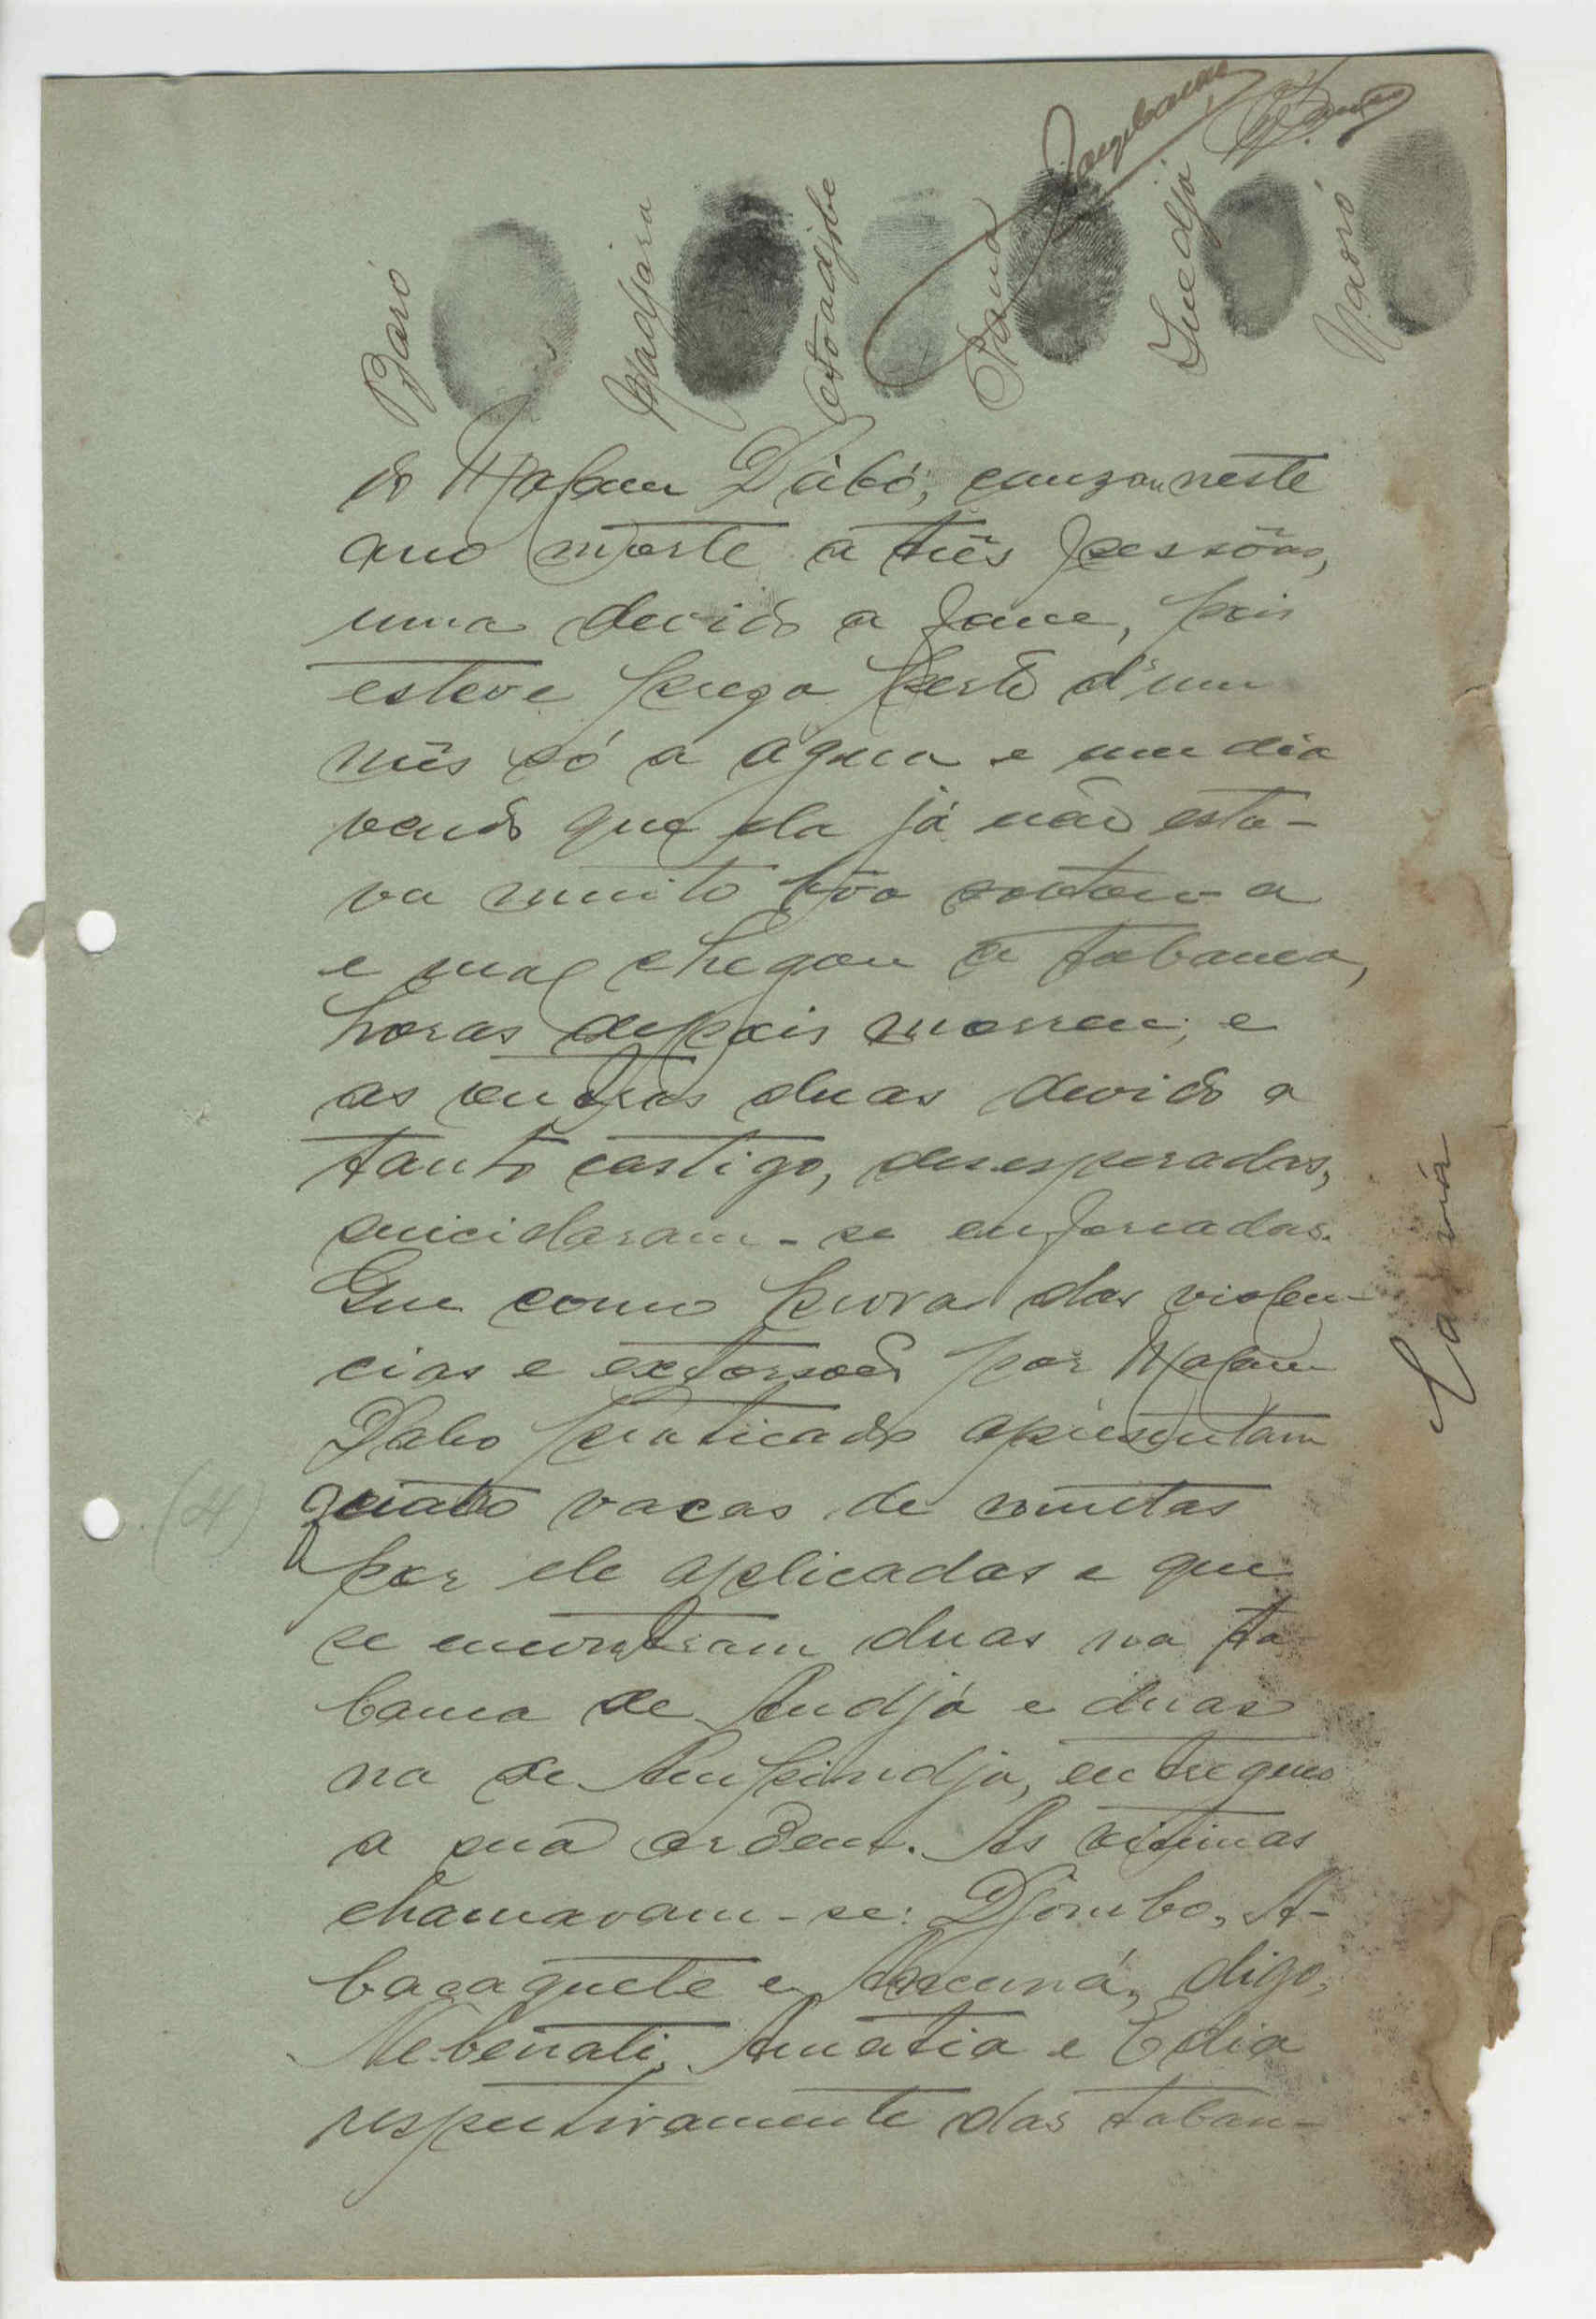 Baró
do Malam Dábó, causou neste
ano morte a três pessôas,
uma devido a fome, pois
esteve prêsa perto d'um
mês só a água e um dia
vendo que ela já não esta-
va muito bôa soltou-a
e mal chegou a tabanca,
horas depois morreu; e
as outras duas devido a
tanto castigo, desesperadas,
suicidaram-se enforcadas.
Que como prova das violen-
cias e extorsoes por Malam
Dabo praticado apresentam
quatro vacas de multas
(4)
por ele aplicadas e que
se encontram duas na ta-
banca de Andjá e duas
na de Ampindja, entregues
a sua ordem. As vitimas
chamavam-se: Djombo, A-
bacaquete e digo,
Nebenali, Amatia e Edia
respectivamente das taban-